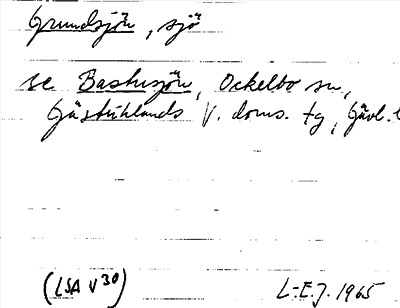 Grundsjön, sjö
se Bastusjön, Ockelbo sn,
Gästriklands V. doms. tg, Gävl. l
(LSA V30)
L-E.J. 1965